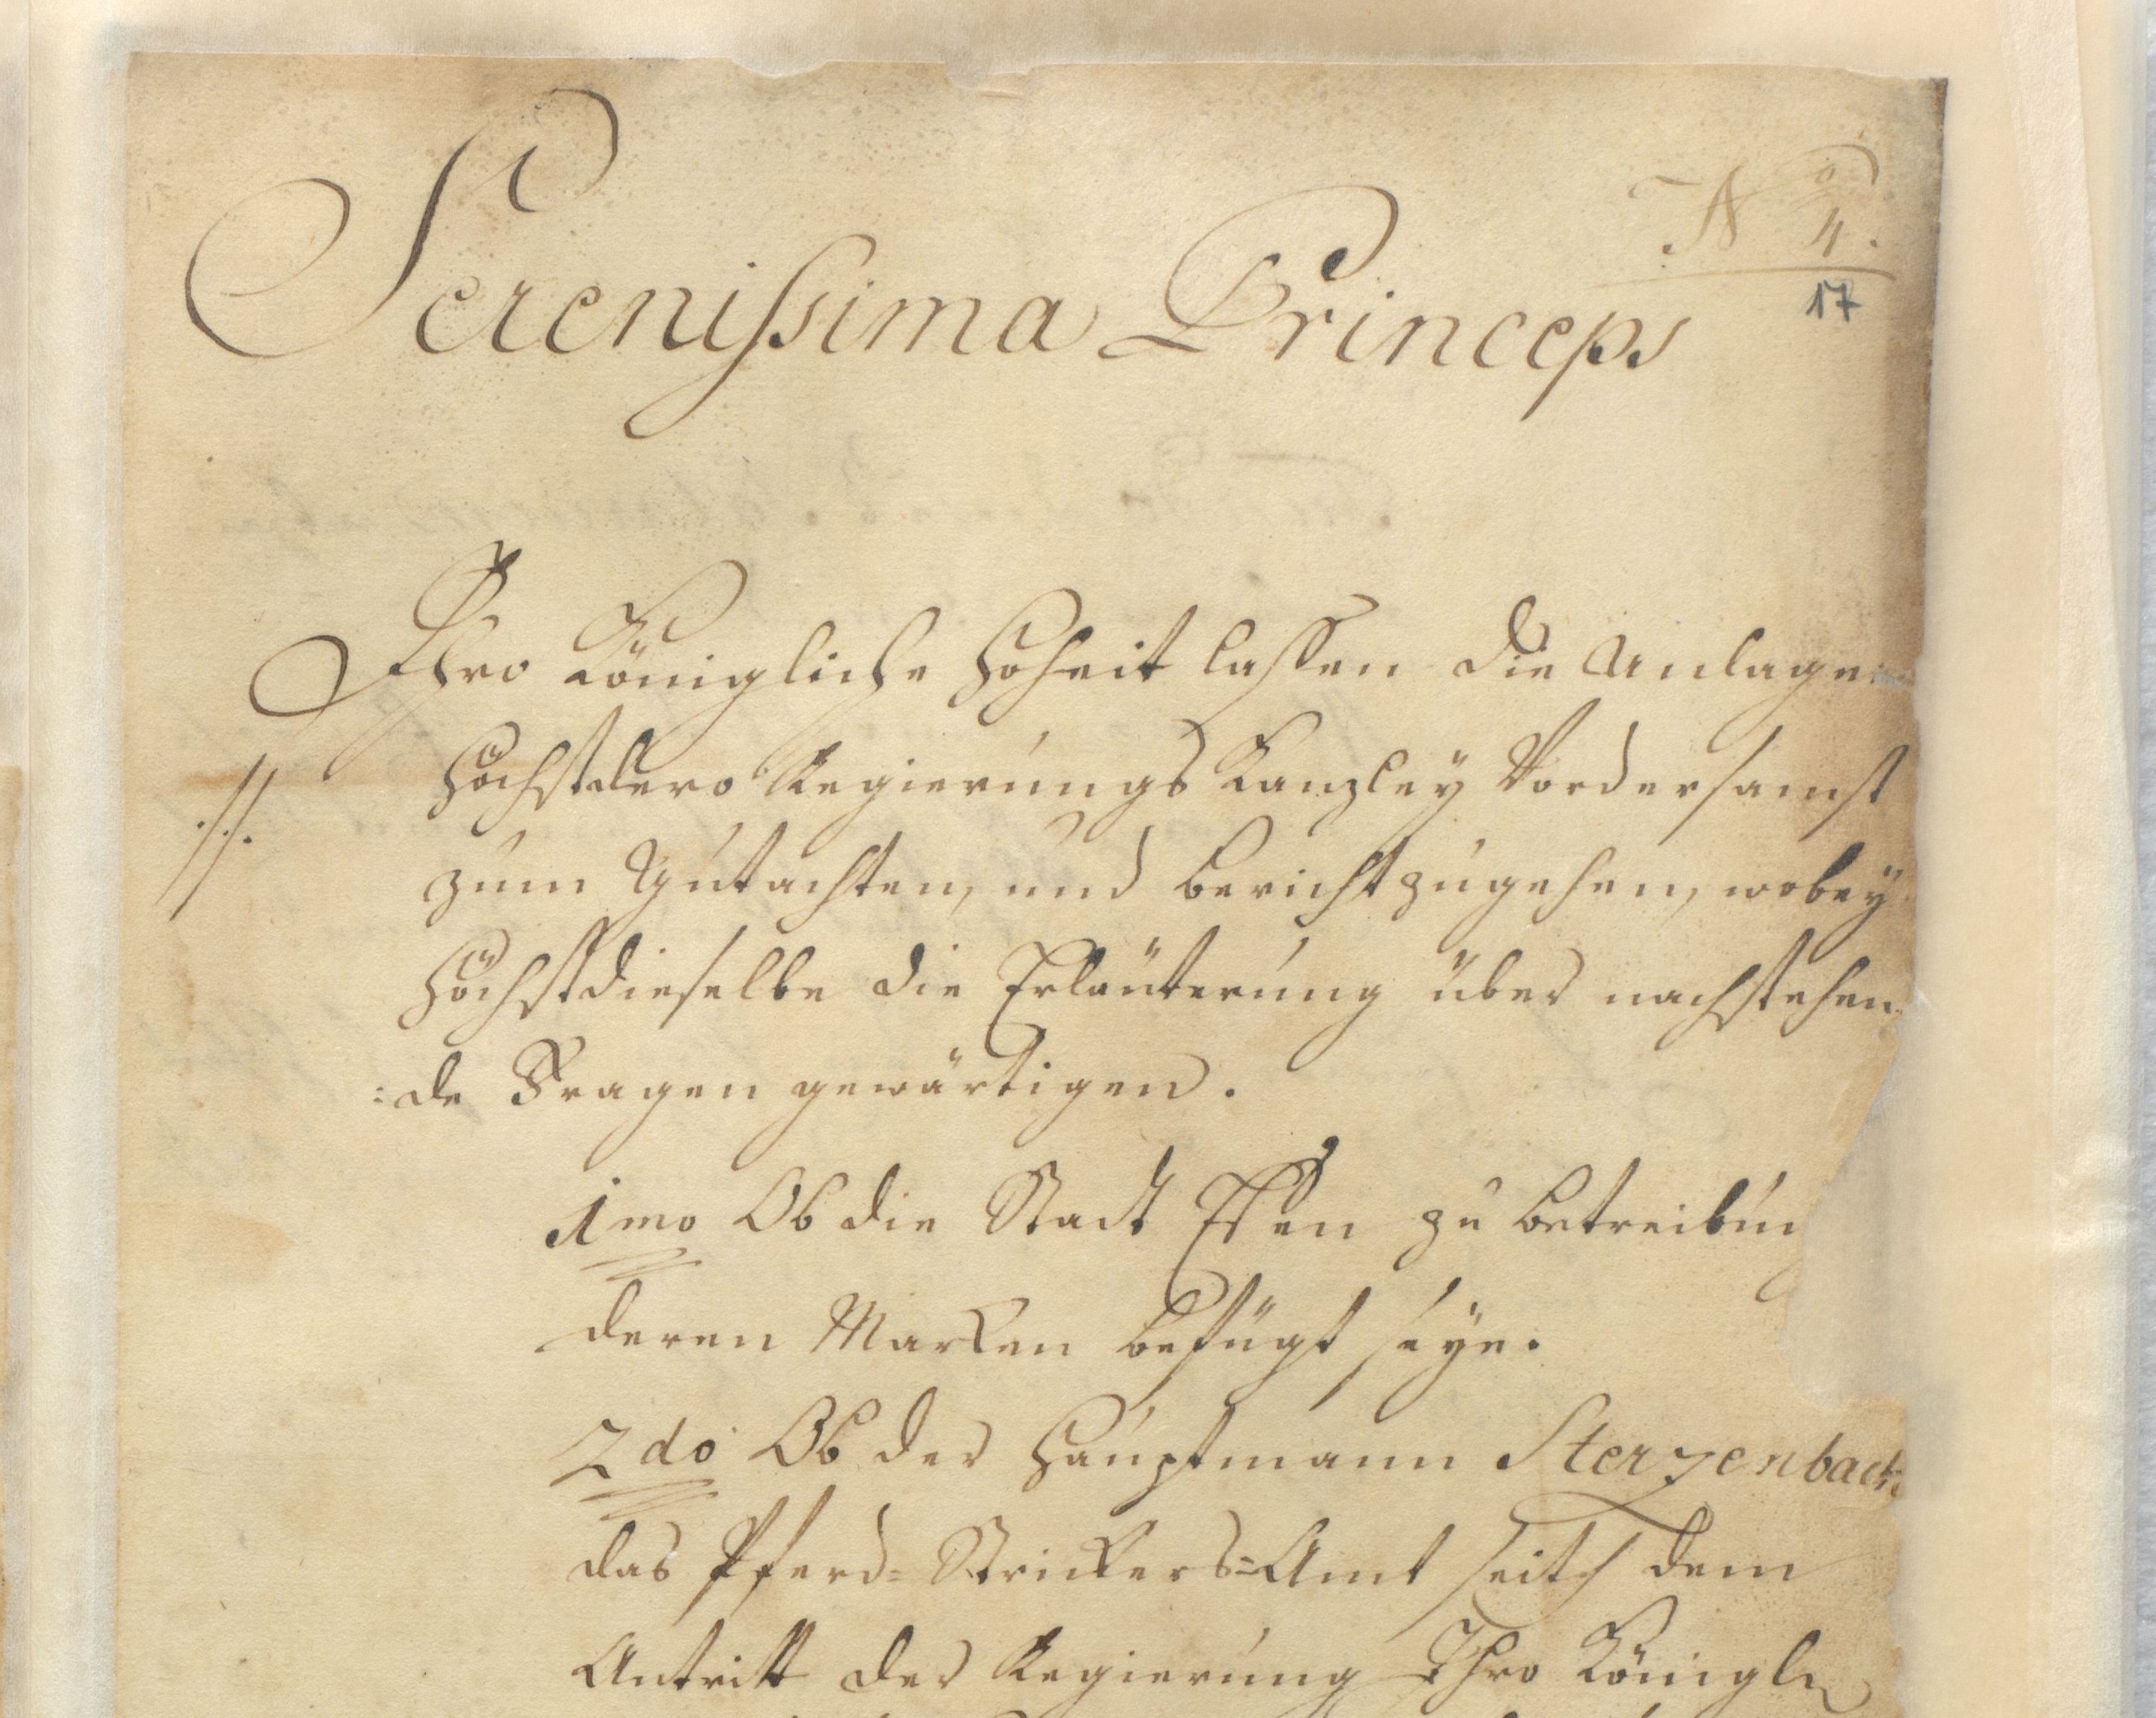 Serenissima Princeps
No 4.
17
Ihro Königliche Hoheit lassen die Anlage
höchstdero Regierungs Kanzley vordersamst
./. zum Gutachten, und bericht zugehen, wobey
höchstdieselbe die Erläuterung über nachstehen
:de Fragen gewärtigen.
1mo Ob die Stadt Essen zu betreibung
deren Marken befügt seye.
2do Ob der Hauptmann Sterzenbach
das Pferd=Strickers=Amt seith dem
Antritt der Regierung Ihro Königln